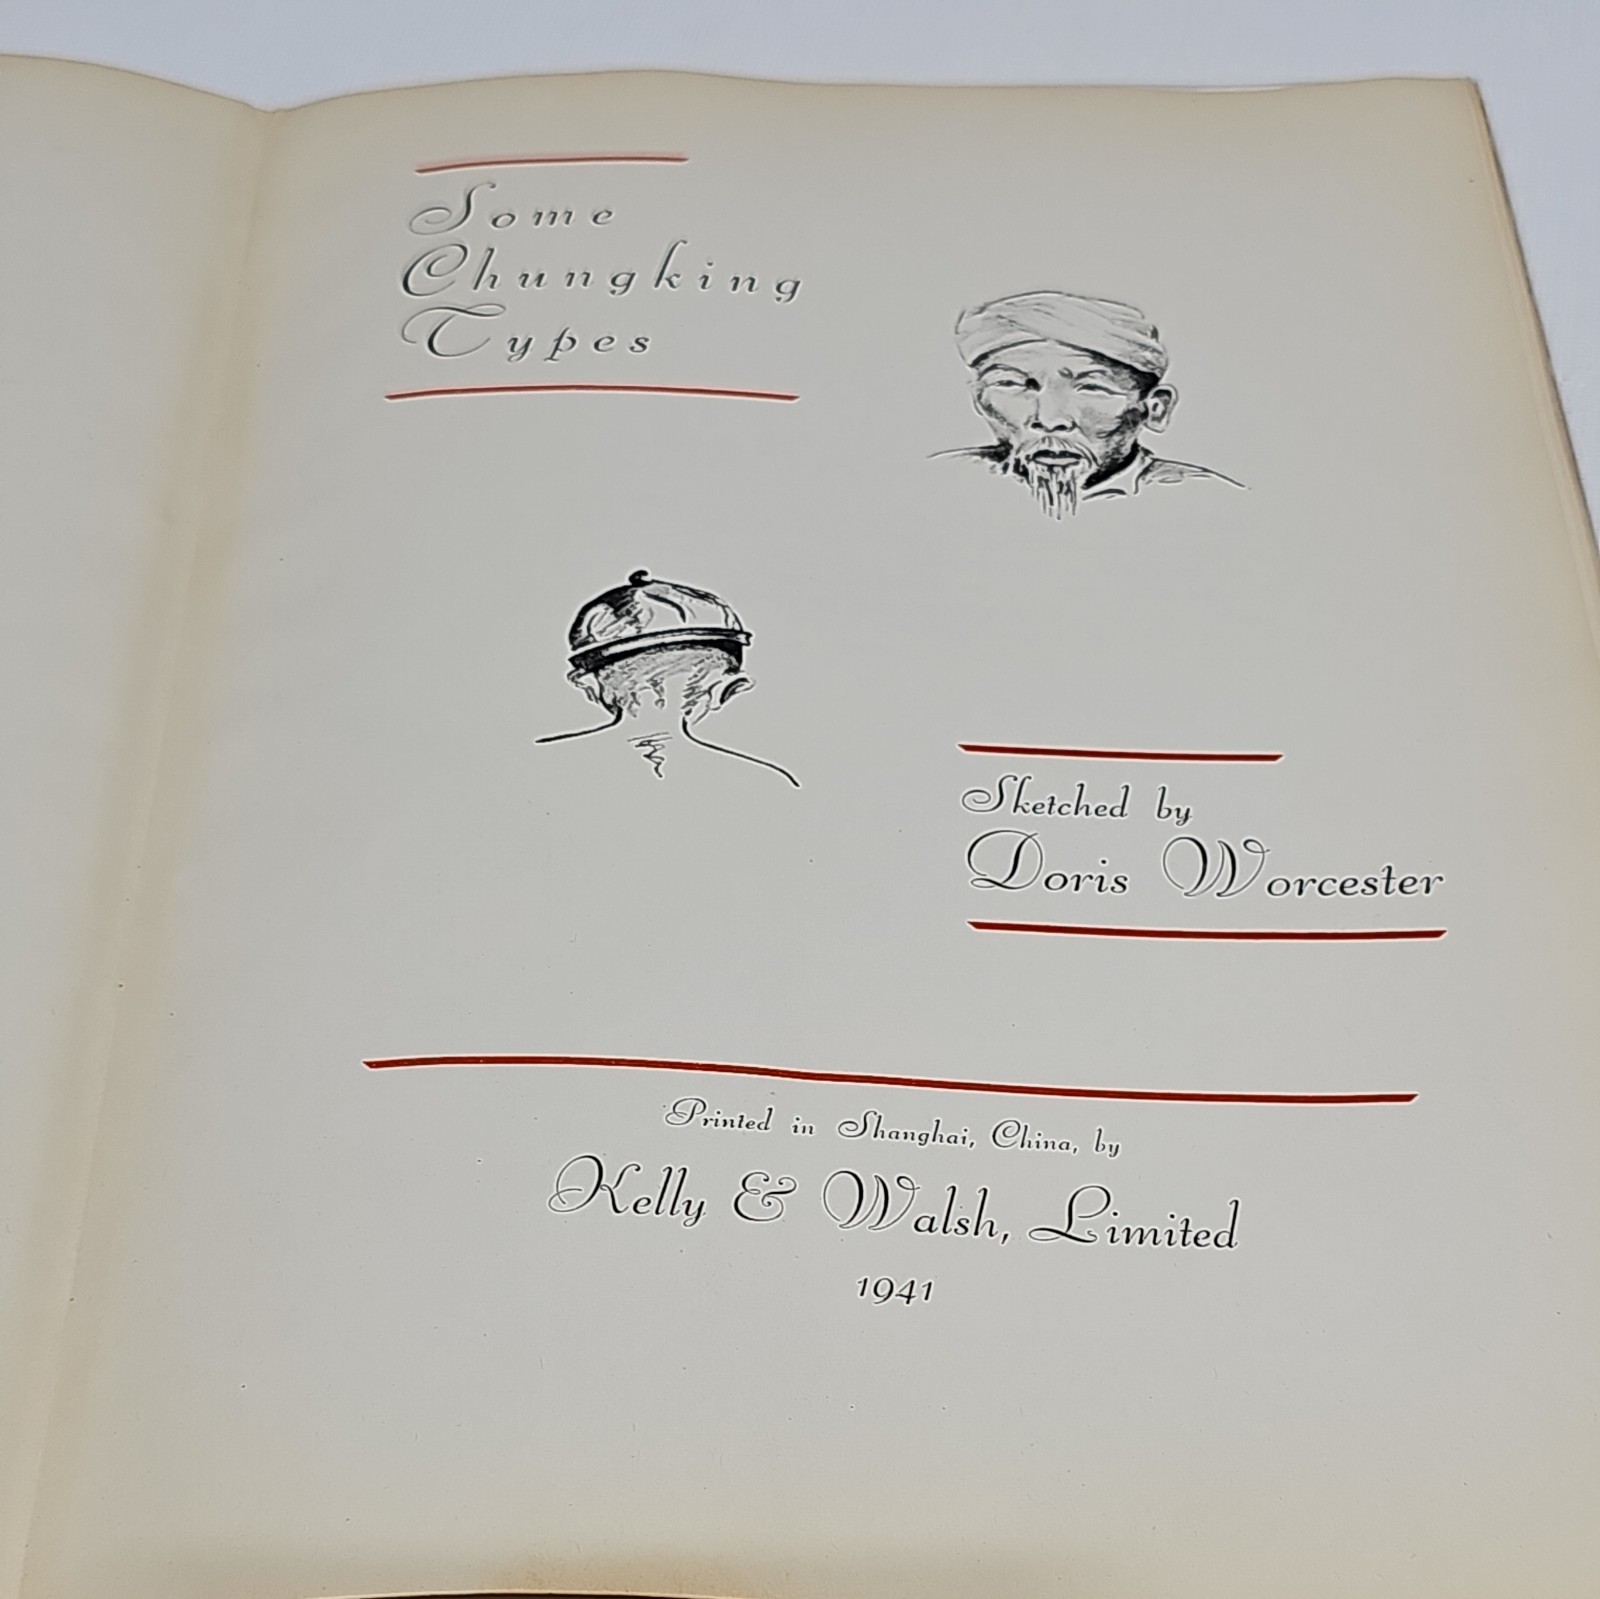 Some
Chungking
Types
Sketched by
Doris Worcester
Printed in Shanghai, China, by
Kelly & Walsh, Limited
1941